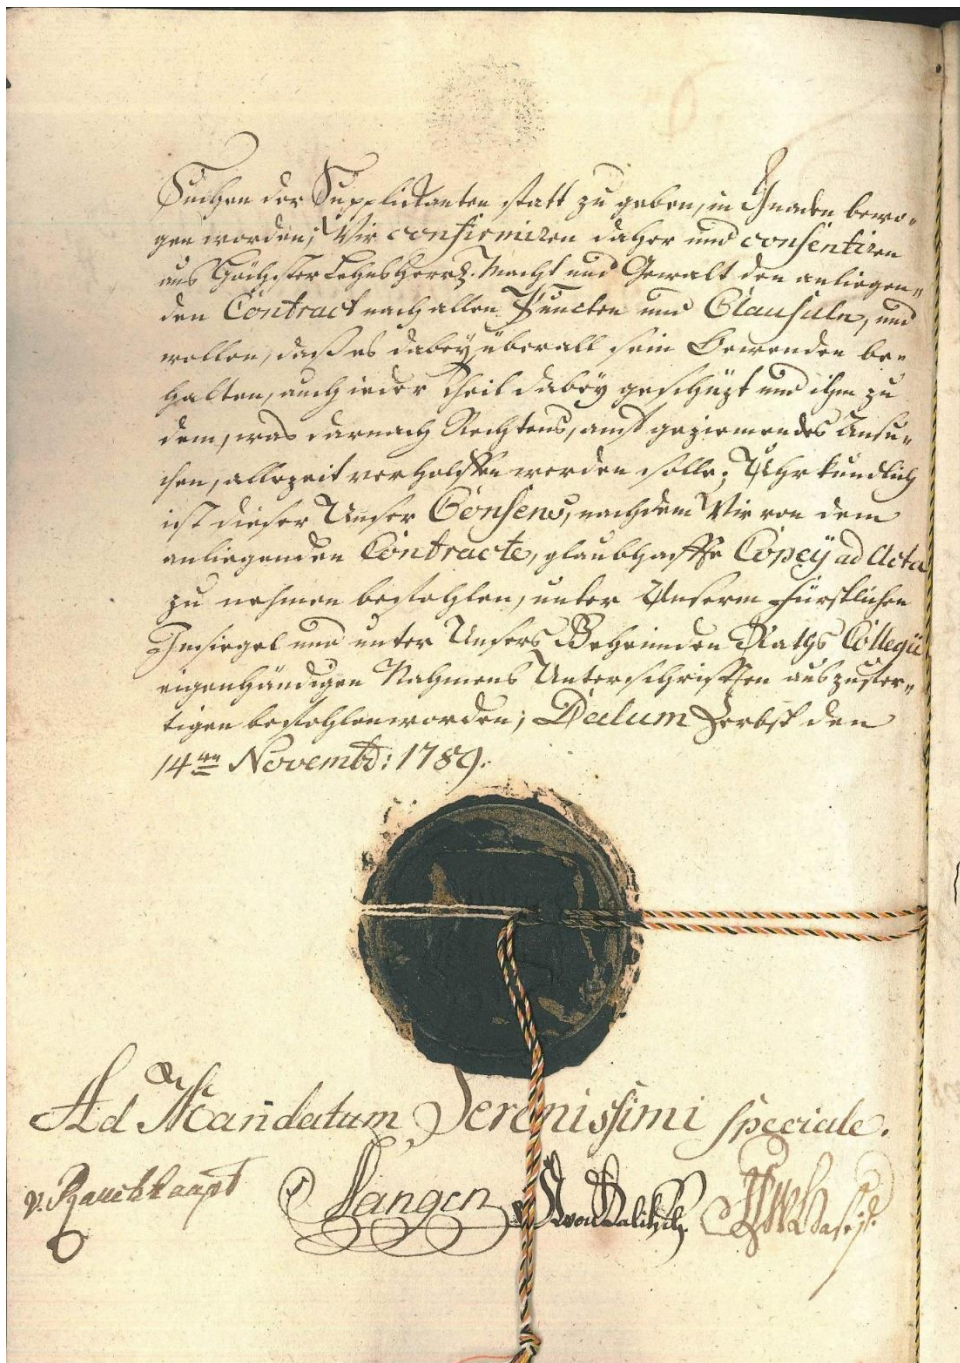 Suchen der Supplicanten statt zu geben, in Gnaden bewo-
gen worden; Wir confirmiren daher und consentiren
aus Höchster Lehnsherrl. Macht und Gewalt den anliegen-
den Contract nach allen Puncten und Clausuln, und
wollen, daß es dabey überall sein Bewenden be-
halten, auch ieder Theil dabey geschüzt und ihm zu
dem, was darnach Rechtens, auf geziemendes Ansu-
chen, allezeit verholffen werden solle; Uhrkundlich
ist dieser Unser Consens, nachdem Wir von dem
anliegenden Contracte, glaubhaffte Copey ad Acta
zu nehmen befohlen, unter Unserm Fürstlichen
Insiegel und unter Unsers Geheimden Raths Collegii
eigenhändigen Nahmens Unterschrifften auszufer-
tigen befohlen worden; Datum Zerbst den
14ten Novembr: 1789.
Ad Mandatum Serenissimi speciale.
v. Rauchhaupt Langen von Kalitsch